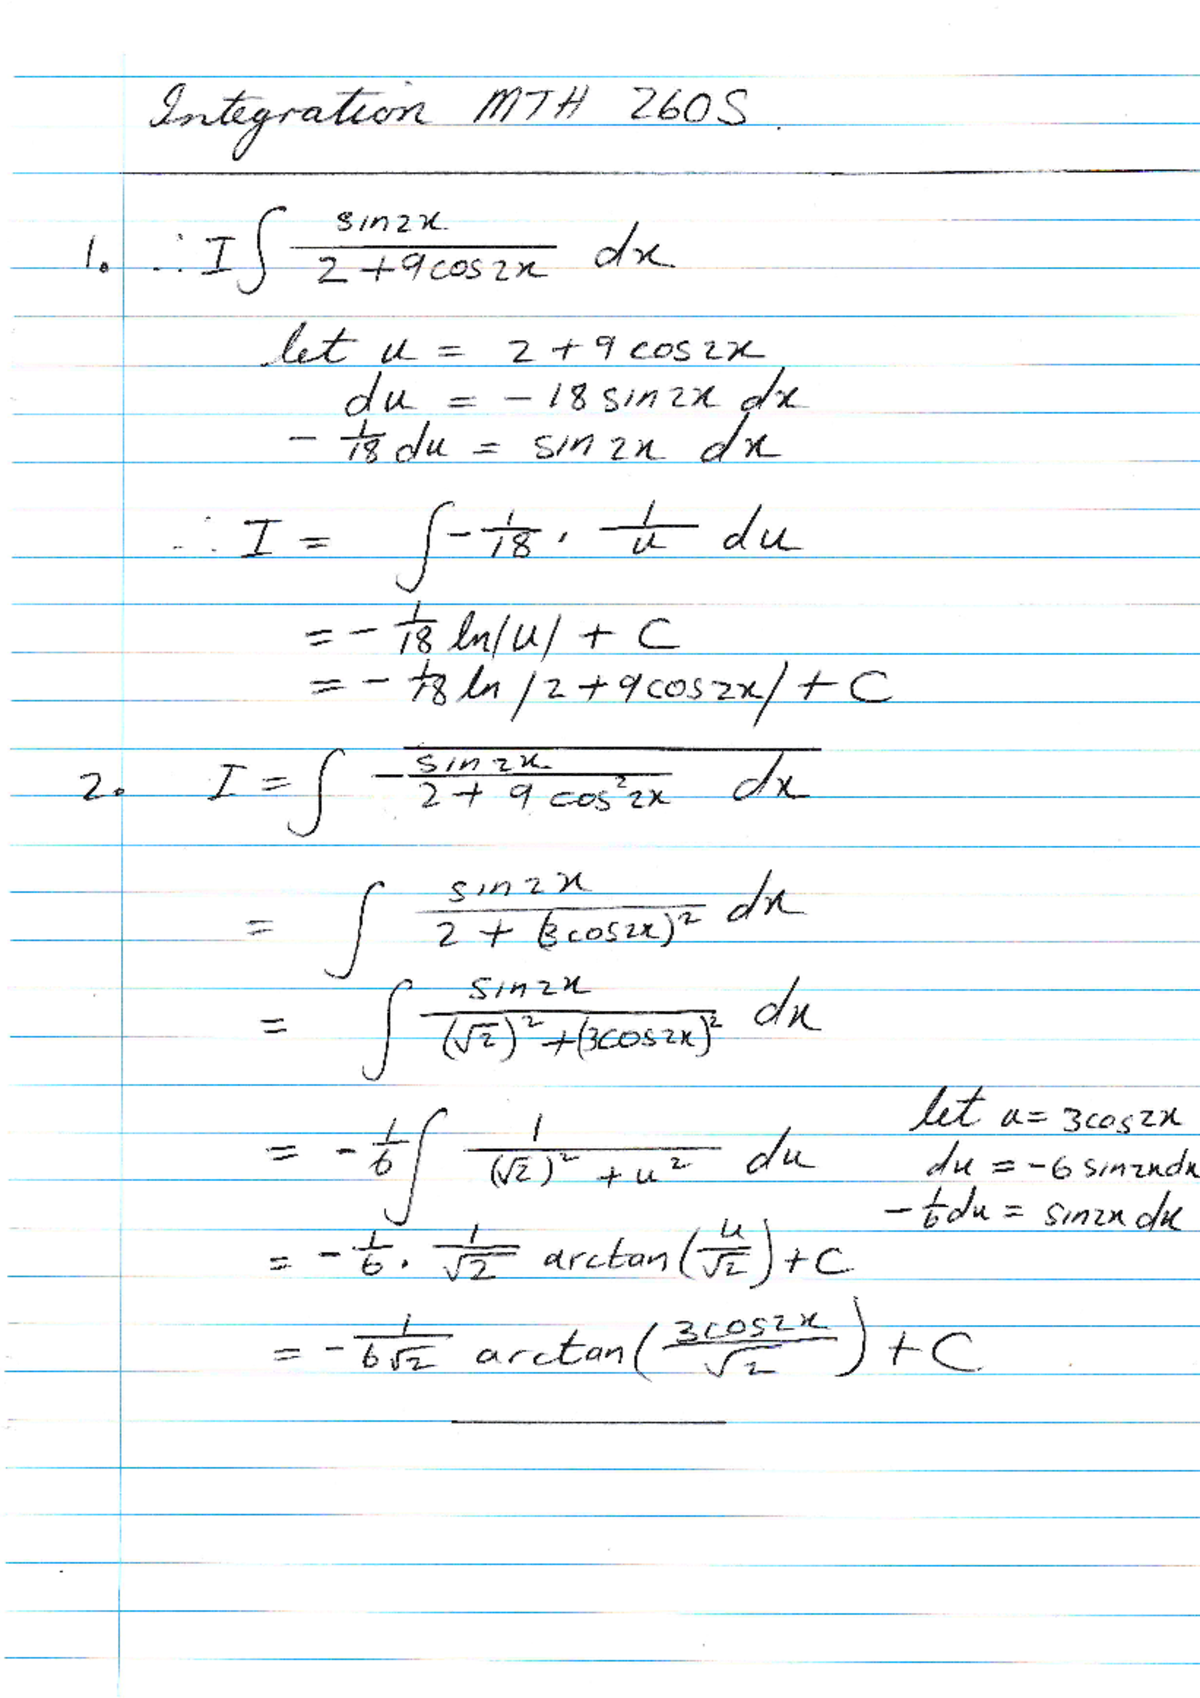 Integration MTH 260S.
1. ∴ I ∫ sin2x / 2 + 9cos2x dx
let u = 2 + 9cos2x
du = - 18 sin2x dx
- 1/18 du = sin2x dx
∴ I = ∫ - 1/18 . 1/u du
= - 1/18 ln|u| + C
= - 1/18 ln|2 + 9cos2x| + C
2. I = ∫ - sin2x / 2 + 9 cos²2x dx
= ∫ sin2x / 2 + (3cos2x)² dx
= ∫ sin2x / (√2)² + (3cos2x)² dx
= - 1/6 ∫ 1 / (√2)² + u² du
let u = 3cos2x
du = -6 sin2x dx
- 1/6 du = sin2x dx
= - 1/6 . 1/√2 arctan(u/√2) + C
= - 1/6√2 arctan(3cos2x/√2) + C